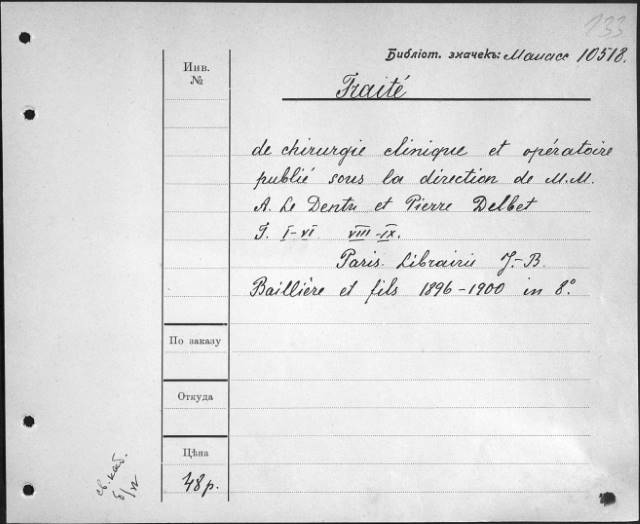 133
Библіот. значекъ: Манасс 10518.
Инв.
№
Traité
de chirurgie clinique et opératoire
publié sous la direction de M.M.
A. Le Dentu et Pierre Delbet
T. I-VI VIII-IX.
Paris. Librairie J.-B.
Baillière et fils 1896-1900 in 8°.
По заказу
Откуда
Цѣна
48 р.